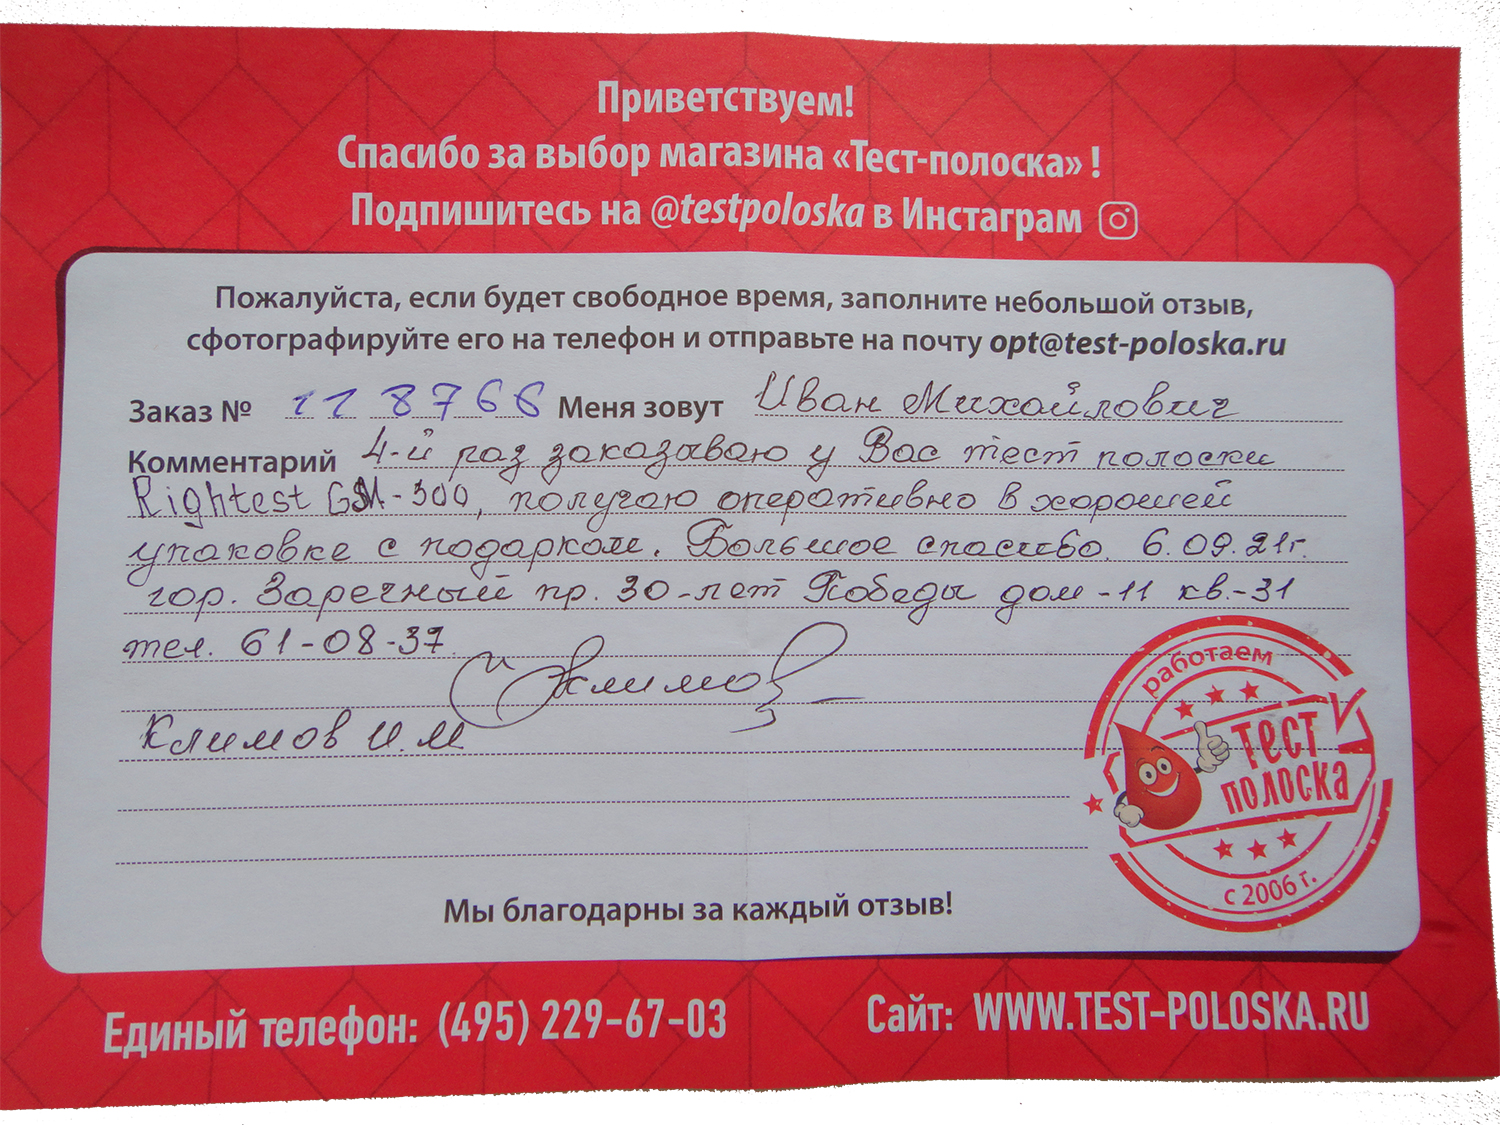 Приветствуем!
Спасибо за выбор магазина «Тест-полоска» !
Подпишитесь на @testpoloska в Инстаграм
Пожалуйста, если будет свободное время, заполните небольшой отзыв,
сфотографируйте его на телефон и отправьте на почту opt@test-poloska.ru
Заказ № 118766 Меня зовут Иван Михайлович
Комментарий 4-й раз заказываю у Вас тест полоски
Rightest GM-300, получаю оперативно в хорошей
упаковке с подарком. Большое спасибо. 6.09.21г.
гор. Заречный пр. 30-лет Победы дом-11 кв.-31
тел. 61-08-37
Климов
Климов И.М
работаем
ТЕСТ
ПОЛОСКА
с 2006 г.
Мы благодарны за каждый отзыв!
Единый телефон: (495) 229-67-03 Сайт: WWW.TEST-POLOSKA.RU